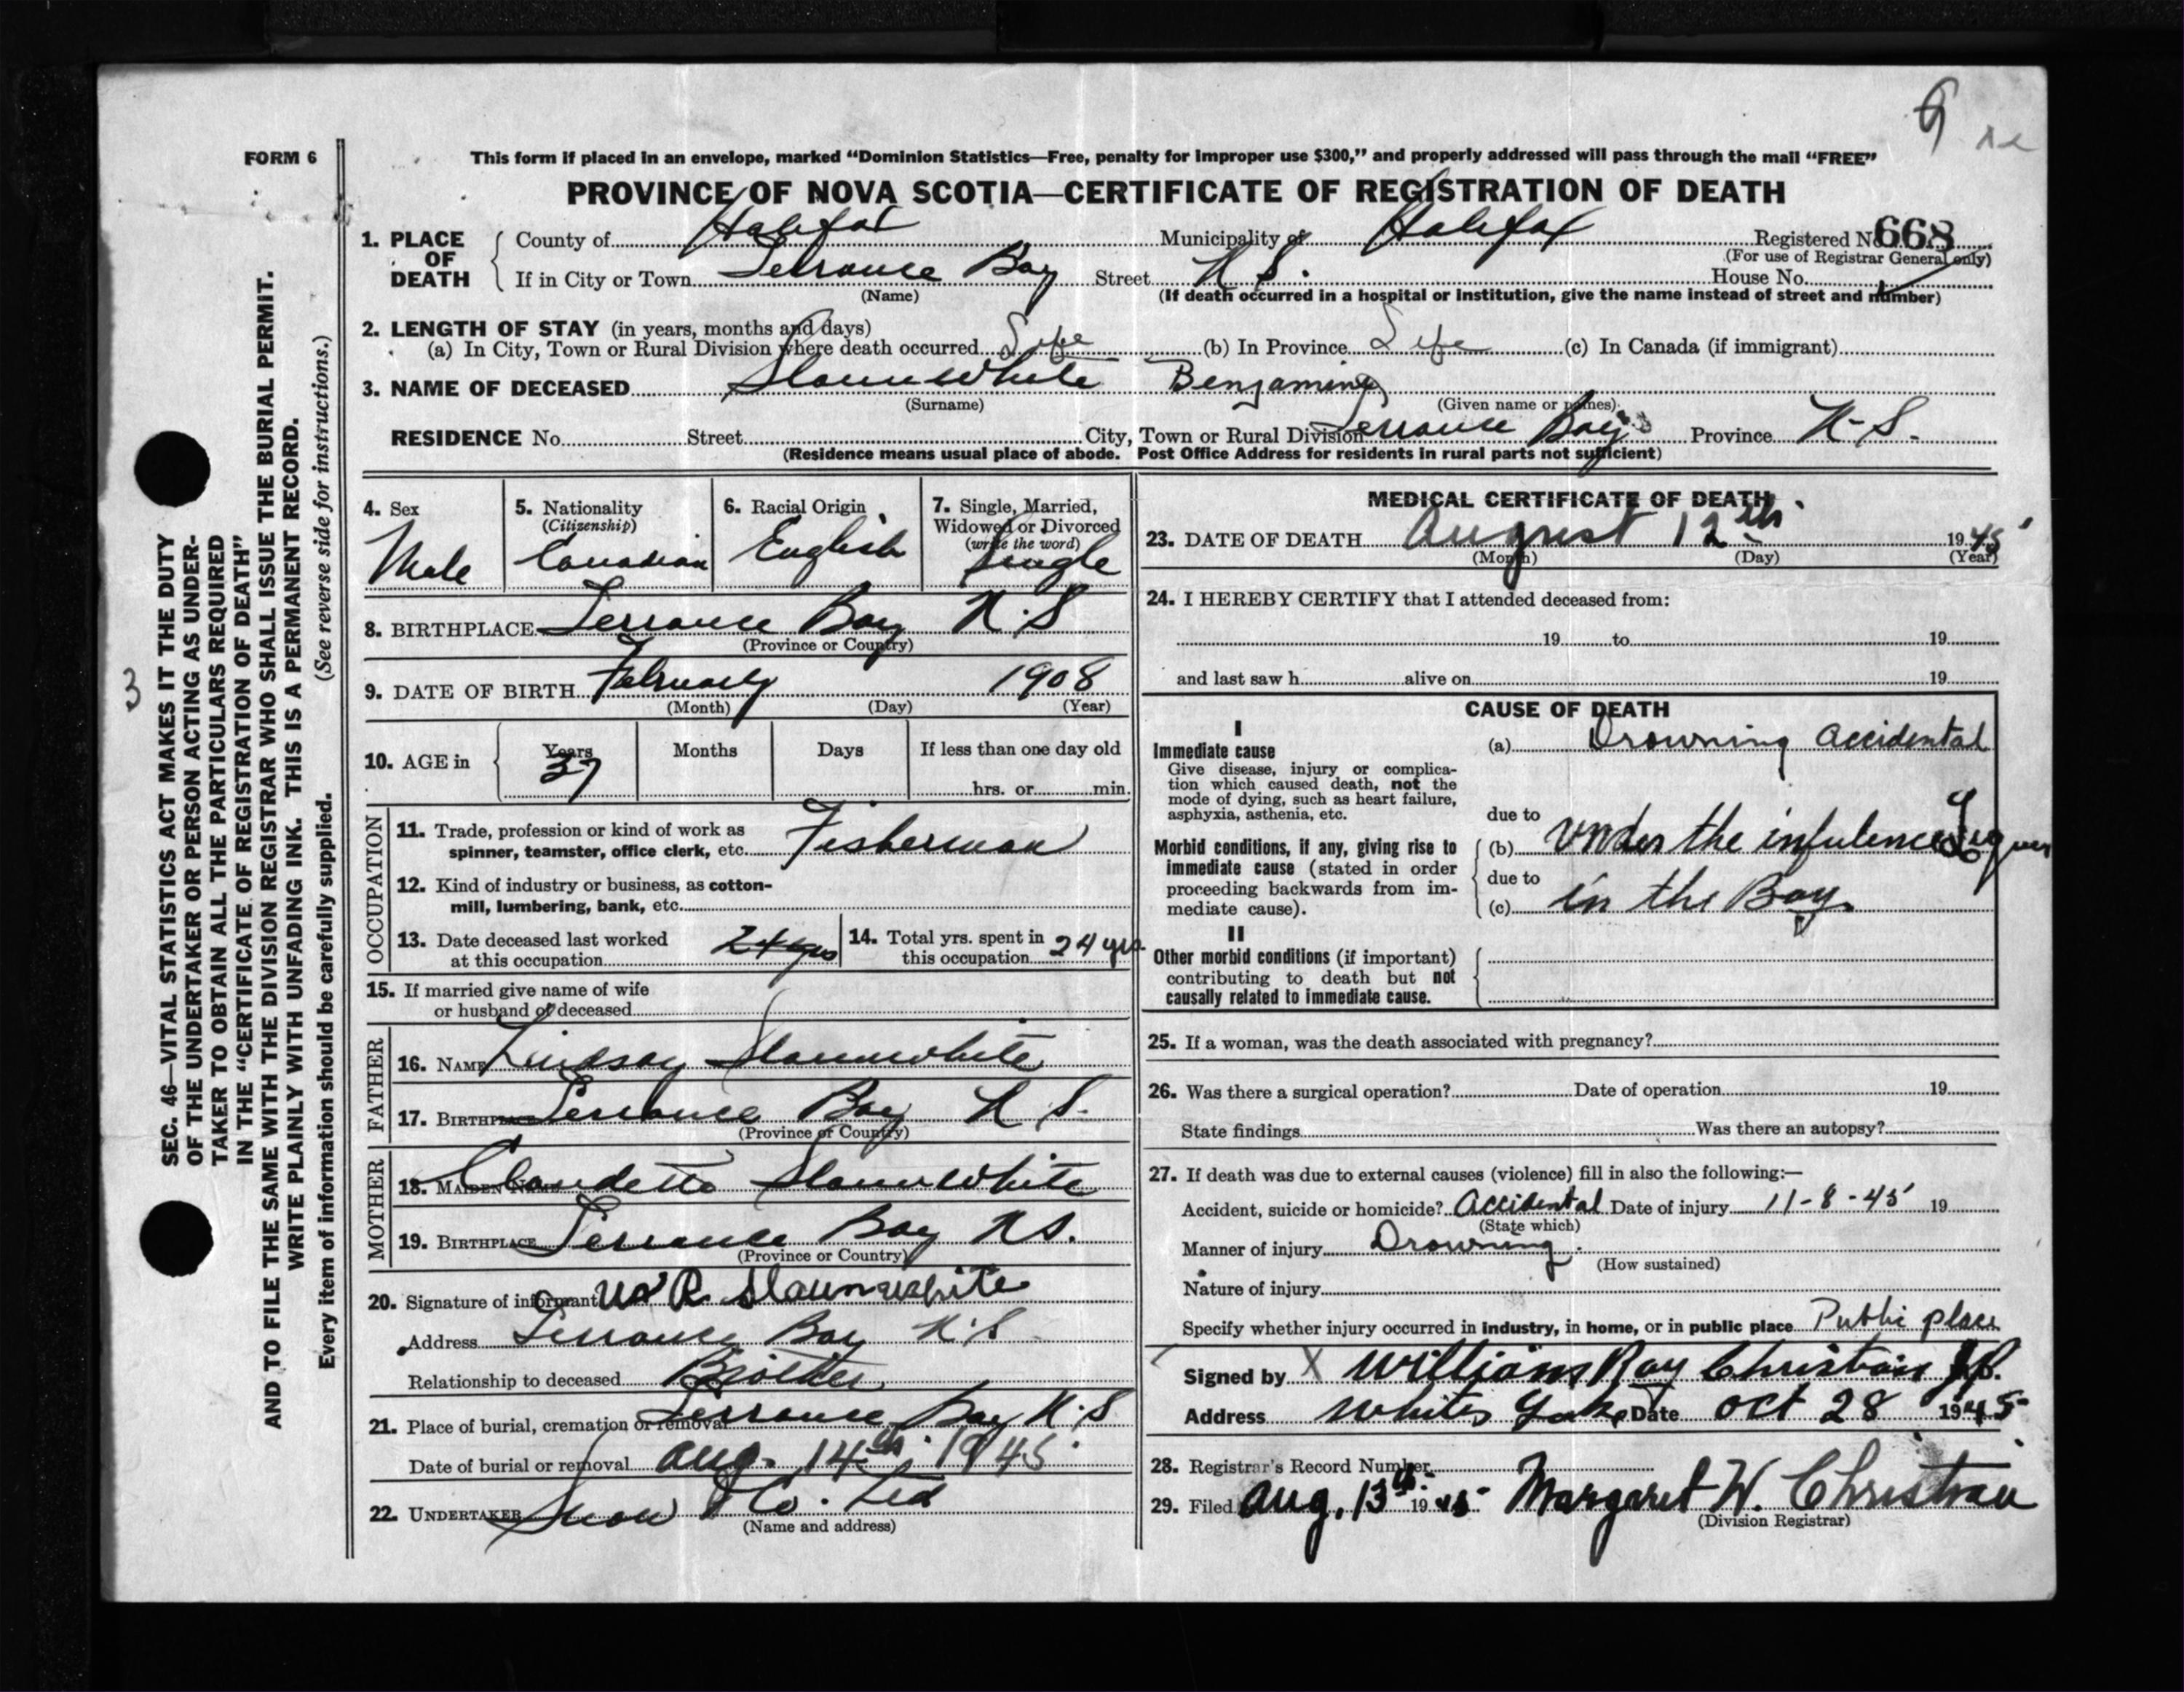 G
FORM 6
This form if placed in an envelope, marked “Dominion Statistics—Free, penalty for improper use $300,” and properly addressed will pass through the mail “FREE”
PROVINCE OF NOVA SCOTIA—CERTIFICATE OF REGISTRATION OF DEATH
1. PLACE OF DEATH
County of Halifax Municipality of Halifax Registered No. 668
(For use of Registrar General only)
If in City or Town Terrance Bay Street N S. House No.
(Name) (If death occurred in a hospital or institution, give the name instead of street and number)
2. LENGTH OF STAY (in years, months and days)
(a) In City, Town or Rural Division where death occurred Life (b) In Province Life (c) In Canada (if immigrant)
3. NAME OF DECEASED Slaunwhite Benjamine
(Surname) (Given name or names)
RESIDENCE No. Street City, Town or Rural Division Terrance Bay Province N-S.
(Residence means usual place of abode. Post Office Address for residents in rural parts not sufficient)
4. Sex Male
5. Nationality (Citizenship) Canadian
6. Racial Origin English
7. Single, Married, Widowed or Divorced (write the word) Single
8. BIRTHPLACE Terrance Bay N.S
(Province or Country)
9. DATE OF BIRTH February 1908
(Month) (Day) (Year)
10. AGE in Years 37 Months Days If less than one day old
hrs. or min.
OCCUPATION
11. Trade, profession or kind of work as
spinner, teamster, office clerk, etc. Fisherman
12. Kind of industry or business, as cotton-
mill, lumbering, bank, etc.
13. Date deceased last worked
at this occupation 24 yrs
14. Total yrs. spent in
this occupation 24 yrs.
15. If married give name of wife
or husband of deceased
FATHER
16. NAME Lindsay Slaunwhite
17. BIRTHPLACE Terrance Bay N S.
(Province or Country)
MOTHER
18. MAIDEN NAME Claudetta Slaunwhite
19. BIRTHPLACE Terrance Bay N S.
(Province or Country)
20. Signature of informant Slaunwhite
Address Terrance Bay N.S
Relationship to deceased Brother
21. Place of burial, cremation or removal Terrance Bay N.S
Date of burial or removal Aug. 14th. 1945.
22. UNDERTAKER Snow & Co. Ltd
(Name and address)
MEDICAL CERTIFICATE OF DEATH
23. DATE OF DEATH August 12th. 1945
(Month) (Day) (Year)
24. I HEREBY CERTIFY that I attended deceased from:
19 to 19
and last saw h alive on 19
CAUSE OF DEATH
I
Immediate cause
Give disease, injury or complica-
tion which caused death, not the
mode of dying, such as heart failure,
asphyxia, asthenia, etc.
(a) Drowning accidental
due to
Morbid conditions, if any, giving rise to
immediate cause (stated in order
proceeding backwards from im-
mediate cause).
(b) Under the infulence Liquer
due to
(c) in the Bay.
II
Other morbid conditions (if important)
contributing to death but not
causally related to immediate cause.
25. If a woman, was the death associated with pregnancy?
26. Was there a surgical operation? Date of operation 19
State findings Was there an autopsy?
27. If death was due to external causes (violence) fill in also the following:—
Accident, suicide or homicide? Accidental Date of injury 11-8-45 19
(State which)
Manner of injury Drowning.
(How sustained)
Nature of injury
Specify whether injury occurred in industry, in home, or in public place Public place
Signed by X William Ray Christian J.P.
Address Whites Lake Date Oct 28 1945
28. Registrar's Record Number
29. Filed Aug. 13th. 1945 Margaret W. Christian
(Division Registrar)
3
SEC. 46—VITAL STATISTICS ACT MAKES IT THE DUTY
OF THE UNDERTAKER OR PERSON ACTING AS UNDER-
TAKER TO OBTAIN ALL THE PARTICULARS REQUIRED
IN THE “CERTIFICATE OF REGISTRATION OF DEATH”
AND TO FILE THE SAME WITH THE DIVISION REGISTRAR WHO SHALL ISSUE THE BURIAL PERMIT.
WRITE PLAINLY WITH UNFADING INK. THIS IS A PERMANENT RECORD.
Every item of information should be carefully supplied. (See reverse side for instructions.)